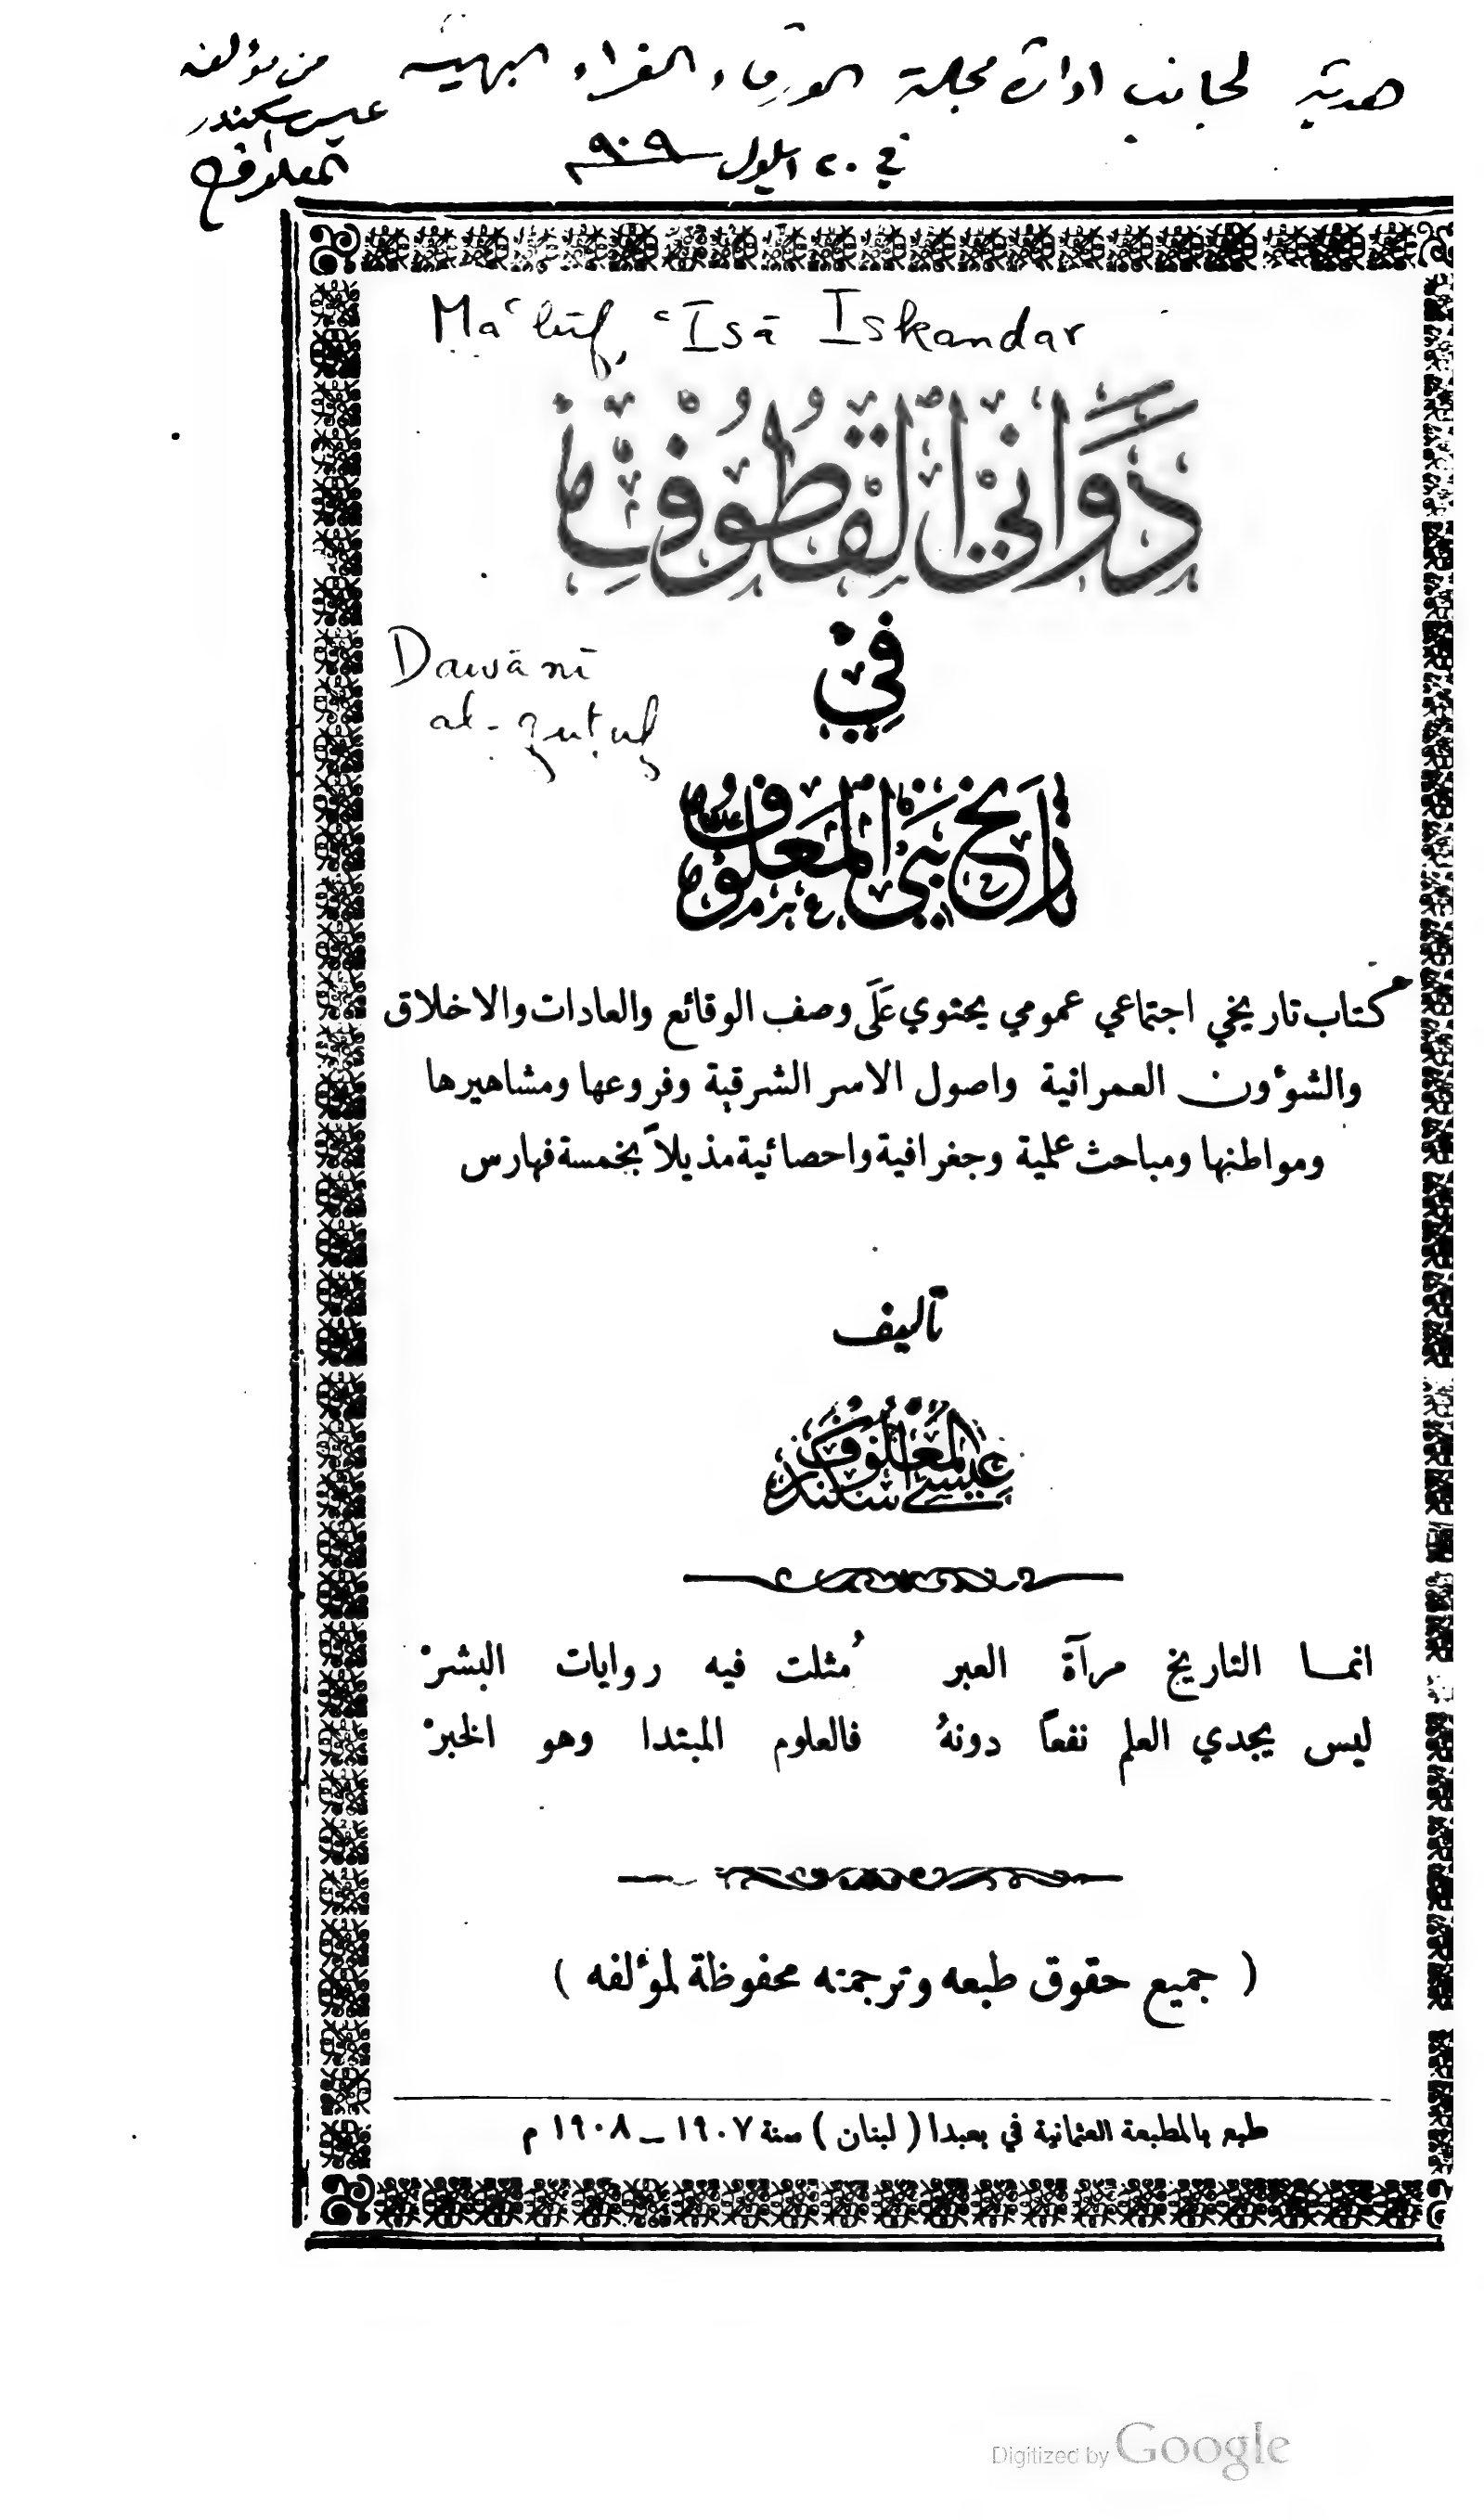 هدية لجانب ادارة مجلة الورقاء الغراء البهية
من مؤلفه
عيسى اسكندر
المعلوف
في ٢٠ ايلول ٩٠٩
Ma‘lūf, ‘Īsā Iskandar
دَوَانِي القُطُوفِ
فِي
Dawānī
al-quṭuf
تاريخ بني المعلوف
كتاب تاريخي اجتماعي عمومي يحتوي عَلَى وصف الوقائع والعادات والاخلاق
والشوٴون العمرانية واصول الاسر الشرقية وفروعها ومشاهيرها
ومواطنها ومباحث علمية وجغرافية واحصائية مذيلاً بخمسة فهارس
تأليف
عيسى اسكندر المعلوف
انما التاريخ مرآة العبر مُثلت فيه روايات البشرْ
ليس يجدي العلم نفعاً دونهُ فالعلوم المبتدا وهو الخبرْ
( جميع حقوق طبعه وترجمته محفوظة لموٴلفه )
طبع بالمطبعة العثمانية في بعبدا ( لبنان ) سنة ١٩٠٧ – ١٩٠٨ م
Digitized by Google